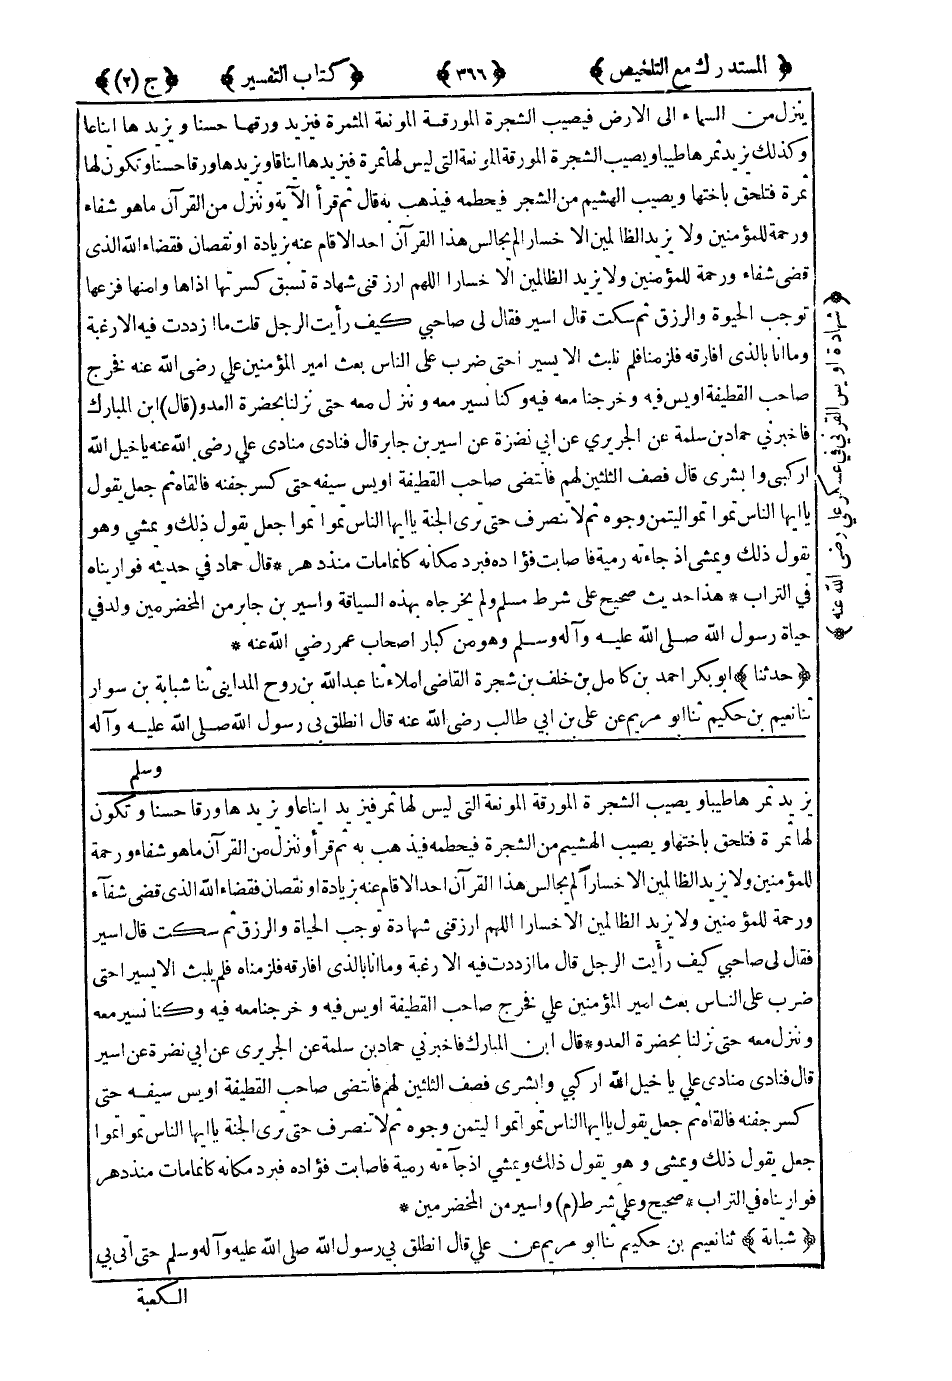 ﴿ المستدرك مع التلخيص ﴾ ﴿ ٣٦٦ ﴾ ﴿ كتاب التفسير ﴾ ﴿ ج (٢) ﴾
ينزل من السماء الى الارض فيصيب الشجرة المورقة المونعة المثمرة فيزيد ورقها حسنا و يزيد ها ايناعا
وكذلك يزيد ثمرها طيبا ويصيب الشجرة المورقة المونعة التى ليس لها ثمرة فيزيدها ايناقا ويزيدها ورقا حسنا وتكون لها
ثمرة فتلحق باختها ويصيب الهشيم من الشجر فيحطمه فيذهب به قال ثم قرأ الآية وننزل من القرآن ماهو شفاء
ورحمة للمؤمنين ولا يزيد الظالمين الا خسار الم يجالس هذا القرآن احد الاقام عنه بزيادة او نقصان فقضاء الله الذى
قضى شفاء ورحمة للمؤمنين ولا يزيد الظالمين الا خسارا اللهم ارزقنى شهادة تسبق كسرتها اذاها وامنها فزعها
توجب الحيوة والرزق ثم سكت قال اسير فقال لى صاحبي كيف رأيت الرجل قلت ما ازددت فيه الارغبة
وما انا بالذى افارقه فلزمنا فلم نلبث الا يسير احتى ضرب على الناس بعث امير المؤمنين علي رضى الله عنه فخرج
صاحب القطيفة اويس فيه وخرجنا معه فيه وكنا نسير معه وننزل معه حتى نزلنا بحضرة العدو (قال) ابن المبارك
فاخبرني حماد بن سلمة عن الجريري عن ابي نضرة عن اسير بن جابر قال فنادى منادى علي رضى الله عنه ياخيل الله
اركبى وابشرى قال فصف الثلثين لهم فانتضى صاحب القطيفة اويس سيفه حتى كسر جفنه فالقاه ثم جعل يقول
ياايها الناس تموا تموا ليتمن وجوه ثم لاتنصرف حتى ترى الجنة ياايها الناس تموا تموا جعل يقول ذلك ويمشي وهو
يقول ذلك ويمشى اذ جاءته رمية فاصابت فؤاده فبرد مكانه كانما مات منذ دهر * قال حماد في حديثه فواريناه
في التراب * هذا حديث صحيح على شرط مسلم ولم يخرجاه بهذه السياقة واسير بن جابر من المخضرمين ولد في
حياة رسول الله صلى الله عليه وآله وسلم وهو من كبار اصحاب عمر رضي الله عنه *
﴿ حدثنا ﴾ ابوبكر احمد بن كامل بن خلف بن شجرة القاضى املاء ثنا عبدالله بن روح المدايني ثنا شبابة بن سوار
ثنا نعيم بن حكيم ثنا ابو مريم عن على بن ابي طالب رضى الله عنه قال انطلق بى رسول الله صلى الله عليه وآله
وسلم
﴿ شهادة اويس القرني في عسكر علي رضى الله عنه ﴾
يزيد ثمرها طيبا ويصيب الشجرة المورقة المونعة التى ليس لها ثمر فيزيد ايناعا ويزيد ها ورقا حسنا وتكون
لها ثمرة فتلحق باختها ويصيب الهشيم من الشجرة فيحطمه فيذهب به ثم قرأ وننزل من القرآن ماهو شفاء ورحمة
للمؤمنين ولا يزيد الظالمين الاخساراً لم يجالس هذا القرآن احد الاقام عنه بزيادة او نقصان فقضاء الله الذى قضى شفآء
ورحمة للمؤمنين ولا يزيد الظالمين الاخسارا اللهم ارزقنى شهادة توجب الحياة والرزق ثم سكت قال اسير
فقال لى صاحبي كيف رأيت الرجل قال ما ازددت فيه الا رغبة وما انا بالذى افارقه فلزمناه فلم يلبث الا يسيراحتى
ضرب على الناس بعث امير المؤمنين علي فخرج صاحب القطيفة اويس فيه و خرجنا معه فيه وكنا نسير معه
وننزل معه حتى نزلنا بحضرة العدو*قال ابن المبارك فاخبرني حماد بن سلمة عن الجريرى عن ابي نضرة عن اسير
قال فنادى منادى علي يا خيل الله اركبي وابشرى فصف الثلثين لهم فانتضى صاحب القطيفة اويس سيفه حتى
كسر جفنه فالقاه ثم جعل يقول ياايها الناس تموا تموا ليتمن وجوه ثم لاتنصرف حتى ترى الجنة ياايها الناس تموا تموا
جعل يقول ذلك ويمشى و هو يقول ذلك ويمشي اذجآءته رمية فاصابت فؤاده فبرد مكانه كانما مات منذدهر
فواريناه في التراب*صحيح وعلى شرط (م) واسير من المخضرمين *
﴿ شبابة ﴾ ثنا نعيم بن حكيم ثنا ابو مريم عن علي قال انطلق بي رسول الله صلى الله عليه وآله وسلم حتى اتى بي
الكعبة